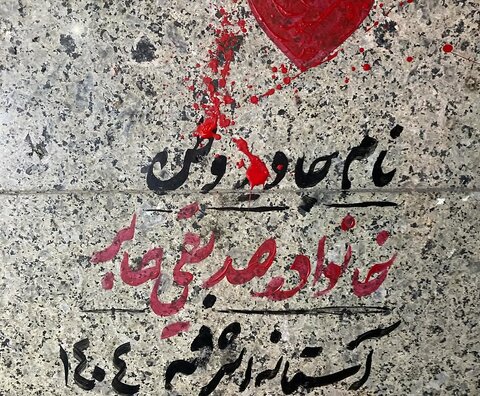 نام جاوید وطن
خانواده صدیقی جابر
آستانه اشرفیه ۱۴۰۴